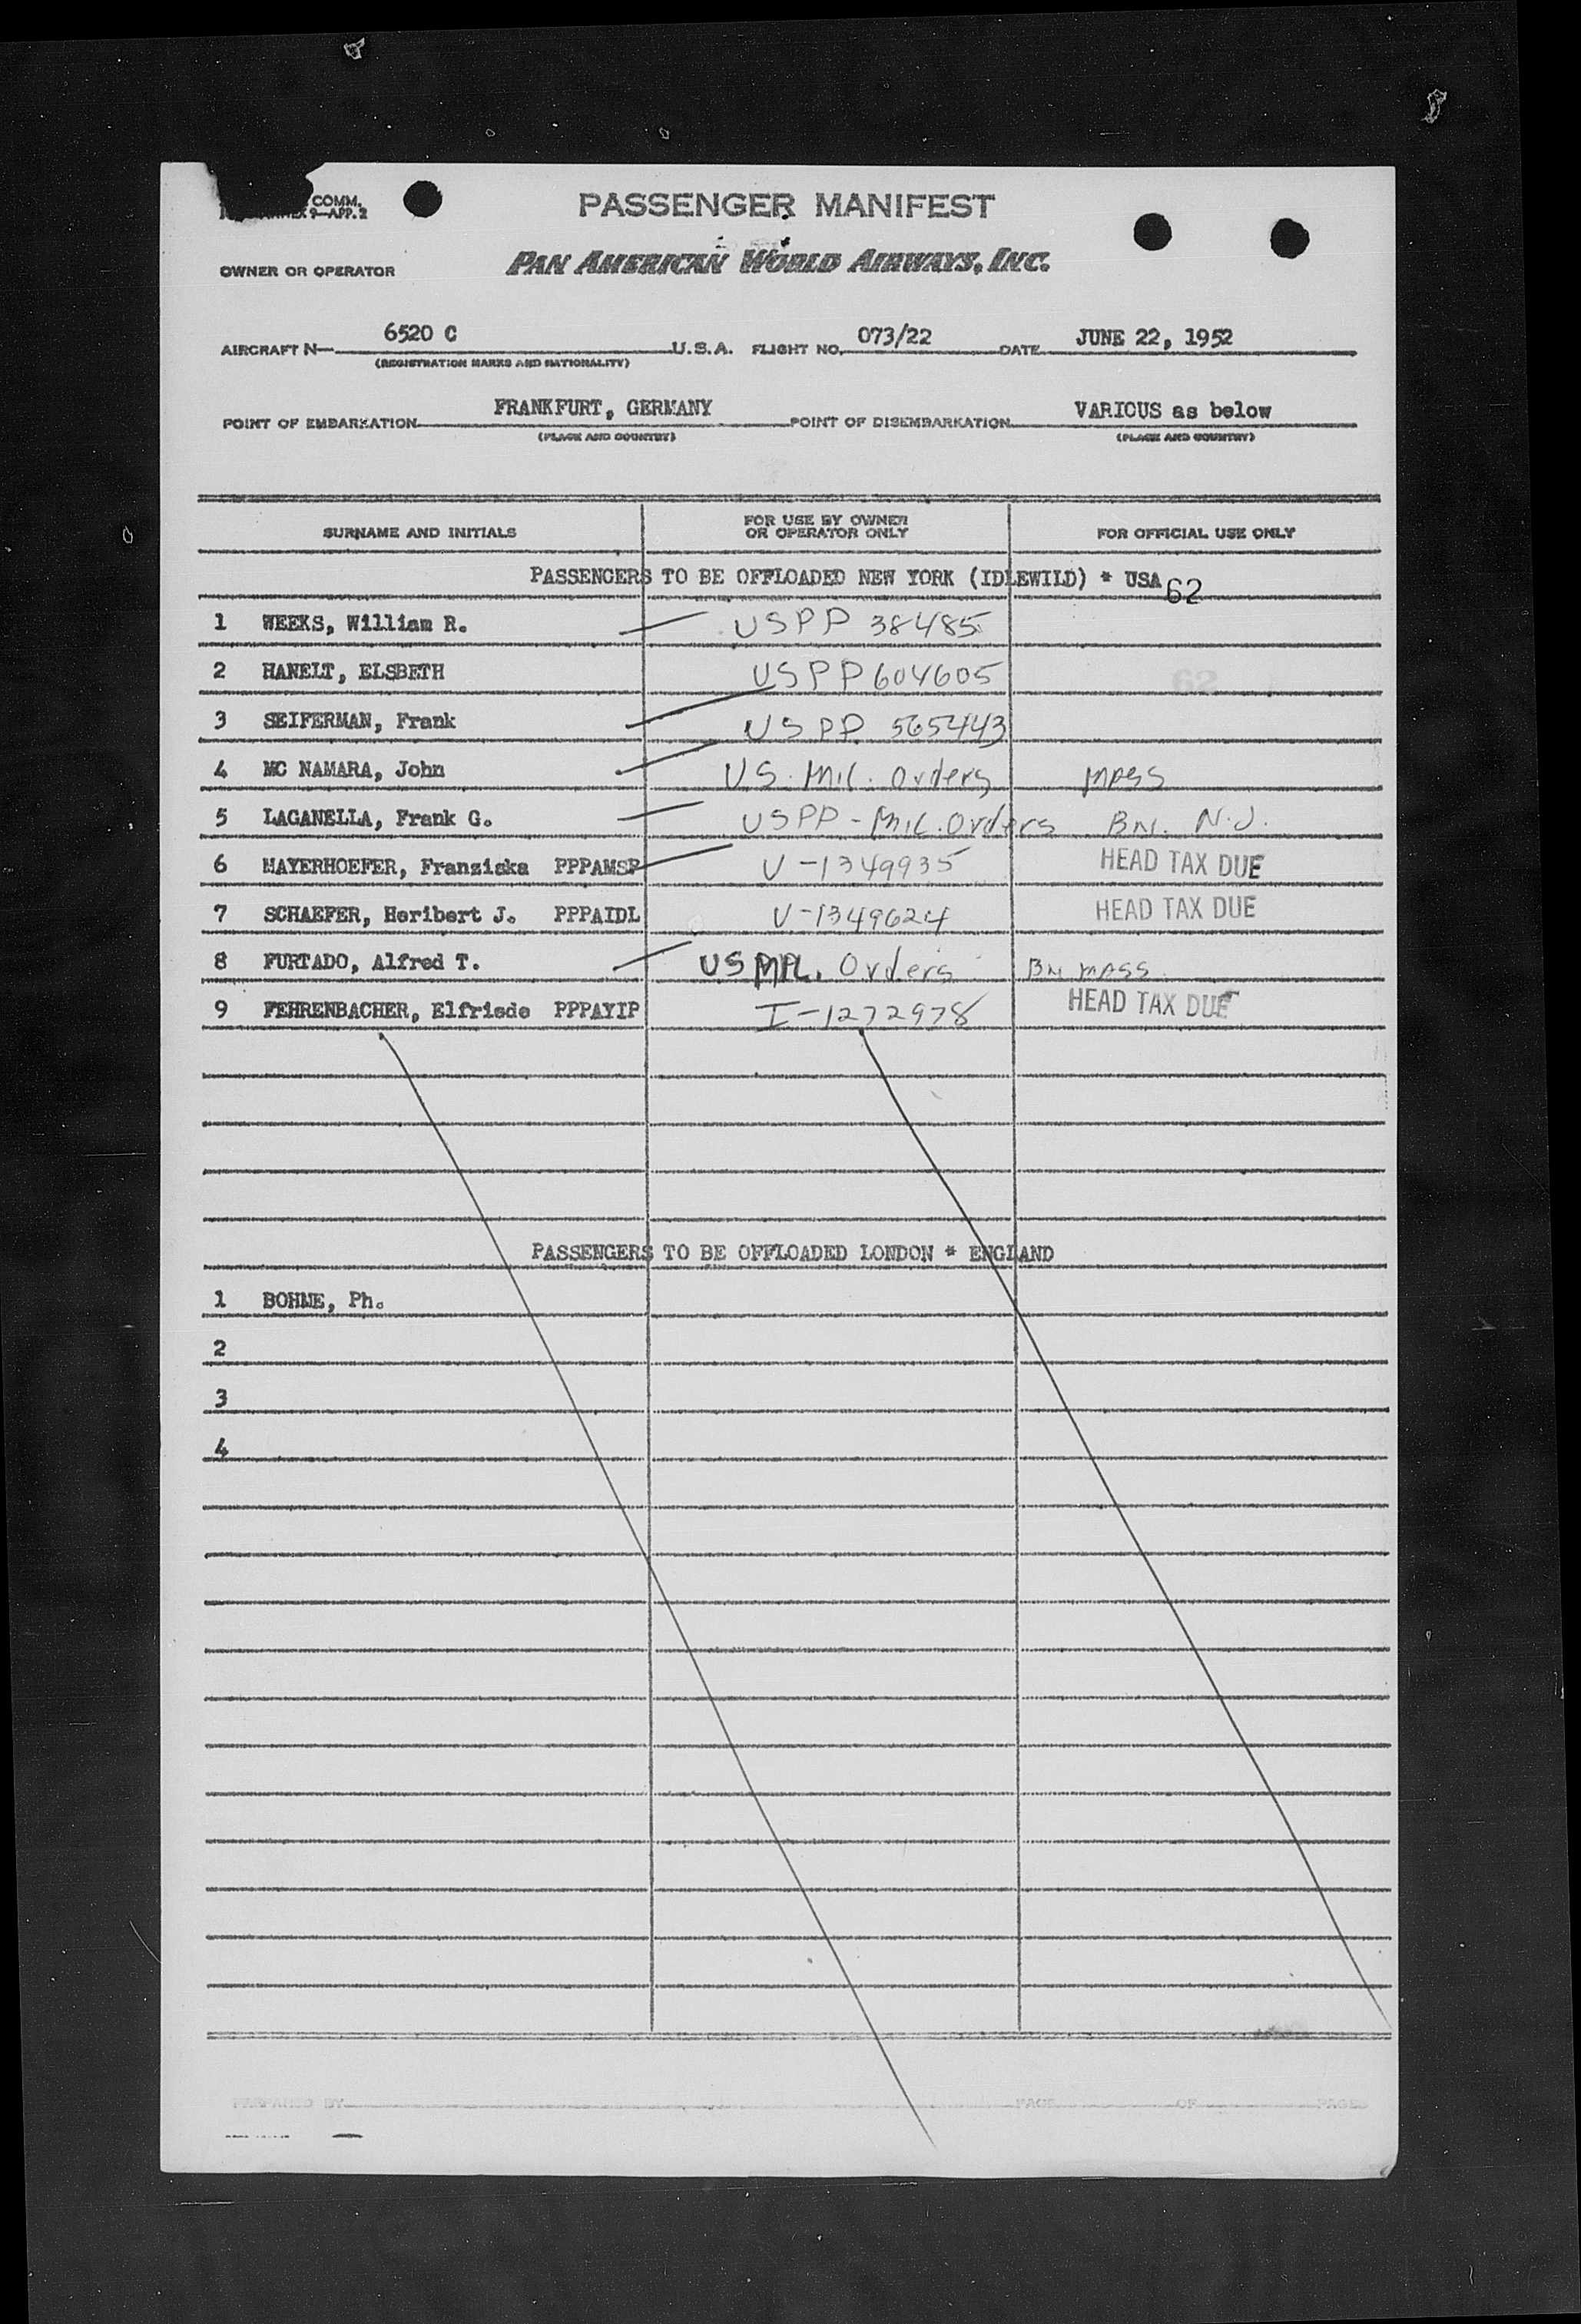 COMM.
9—APP. 2
PASSENGER MANIFEST
OWNER OR OPERATOR
PAN AMERICAN WORLD AIRWAYS, INC.
AIRCRAFT N— 6520 C U.S.A. FLIGHT NO. 073/22 DATE JUNE 22, 1952
(REGISTRATION MARKS AND NATIONALITY)
POINT OF EMBARKATION FRANKFURT, GERMANY POINT OF DISEMBARKATION VARIOUS as below
(PLACE AND COUNTRY) (PLACE AND COUNTRY)
SURNAME AND INITIALS FOR USE BY OWNER OR OPERATOR ONLY FOR OFFICIAL USE ONLY
PASSENGERS TO BE OFFLOADED NEW YORK (IDLEWILD) * USA 62
1 WEEKS, William R. USPP 38485
2 HANELT, ELSBETH USPP 604605 62
3 SEIFERMAN, Frank USPP 565443
4 MC NAMARA, John US. Mil. Orders Mass
5 LAGANELLA, Frank G. USPP - Mil. Orders BN. N.J.
6 MAYERHOEFER, Franziska PPPAMSP V-1349935 HEAD TAX DUE
7 SCHAEFER, Heribert J. PPPAIDL V-1349624 HEAD TAX DUE
8 FURTADO, Alfred T. US MIL. Orders BN Mass
9 FEHRENBACHER, Elfriede PPPAYIP I-1272978 HEAD TAX DUE
PASSENGERS TO BE OFFLOADED LONDON * ENGLAND
1 BOHME, Ph.
2
3
4
PREPARED BY PAGE OF PAGES